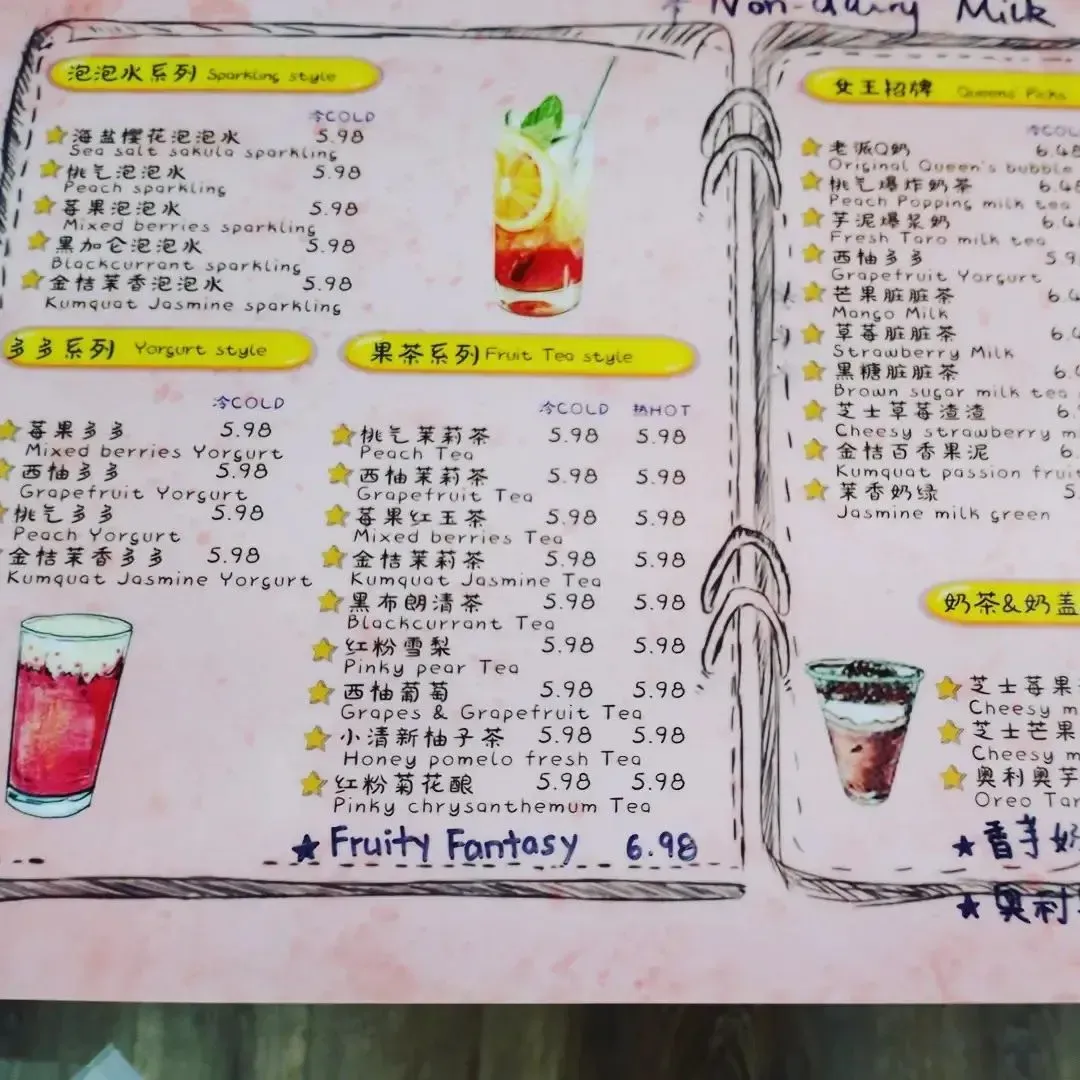 Non-dairy Milk
泡泡水系列 Sparkling style
冷COLD
海盐樱花泡泡水 5.98
Sea salt sakula sparkling
桃气泡泡水 5.98
Peach sparkling
莓果泡泡水 5.98
Mixed berries sparkling
黑加仑泡泡水 5.98
Blackcurrant sparkling
金桔茉香泡泡水 5.98
Kumquat Jasmine sparkling
多多系列 Yorgurt style
冷COLD
莓果多多 5.98
Mixed berries Yorgurt
西柚多多 5.98
Grapefruit Yorgurt
桃气多多 5.98
Peach Yorgurt
金桔茉香多多 5.98
Kumquat Jasmine Yorgurt
果茶系列 Fruit Tea style
冷COLD 热HOT
桃气茉莉茶 5.98 5.98
Peach Tea
西柚茉莉茶 5.98 5.98
Grapefruit Tea
莓果红玉茶 5.98 5.98
Mixed berries Tea
金桔茉莉茶 5.98 5.98
Kumquat Jasmine Tea
黑布朗清茶 5.98 5.98
Blackcurrant Tea
红粉雪梨 5.98 5.98
Pinky pear Tea
西柚葡萄 5.98 5.98
Grapes & Grapefruit Tea
小清新柚子茶 5.98 5.98
Honey pomelo fresh Tea
红粉菊花酿 5.98 5.98
Pinky chrysanthemum Tea
★ Fruity Fantasy 6.98
女王招牌 Queens Picks
冷COL
老派Q奶 6.48
Original Queen's bubble
桃气爆炸奶茶 6.48
Peach Popping milk tea
芋泥爆浆奶 6.4
Fresh Taro milk tea
西柚多多 5.9
Grapefruit Yorgurt
芒果脏脏茶 6.4
Mango Milk
草莓脏脏茶 6.4
Strawberry Milk
黑糖脏脏茶 6.4
Brown sugar milk tea
芝士草莓渣渣 6.
Cheesy strawberry m
金桔百香果泥 6.
Kumquat passion fruit
茉香奶绿 5
Jasmine milk green
奶茶&奶盖
芝士莓果
Cheesy m
芝士芒果
Cheesy m
奥利奥芋
Oreo Tar
★ 香芋奶
★ 奥利